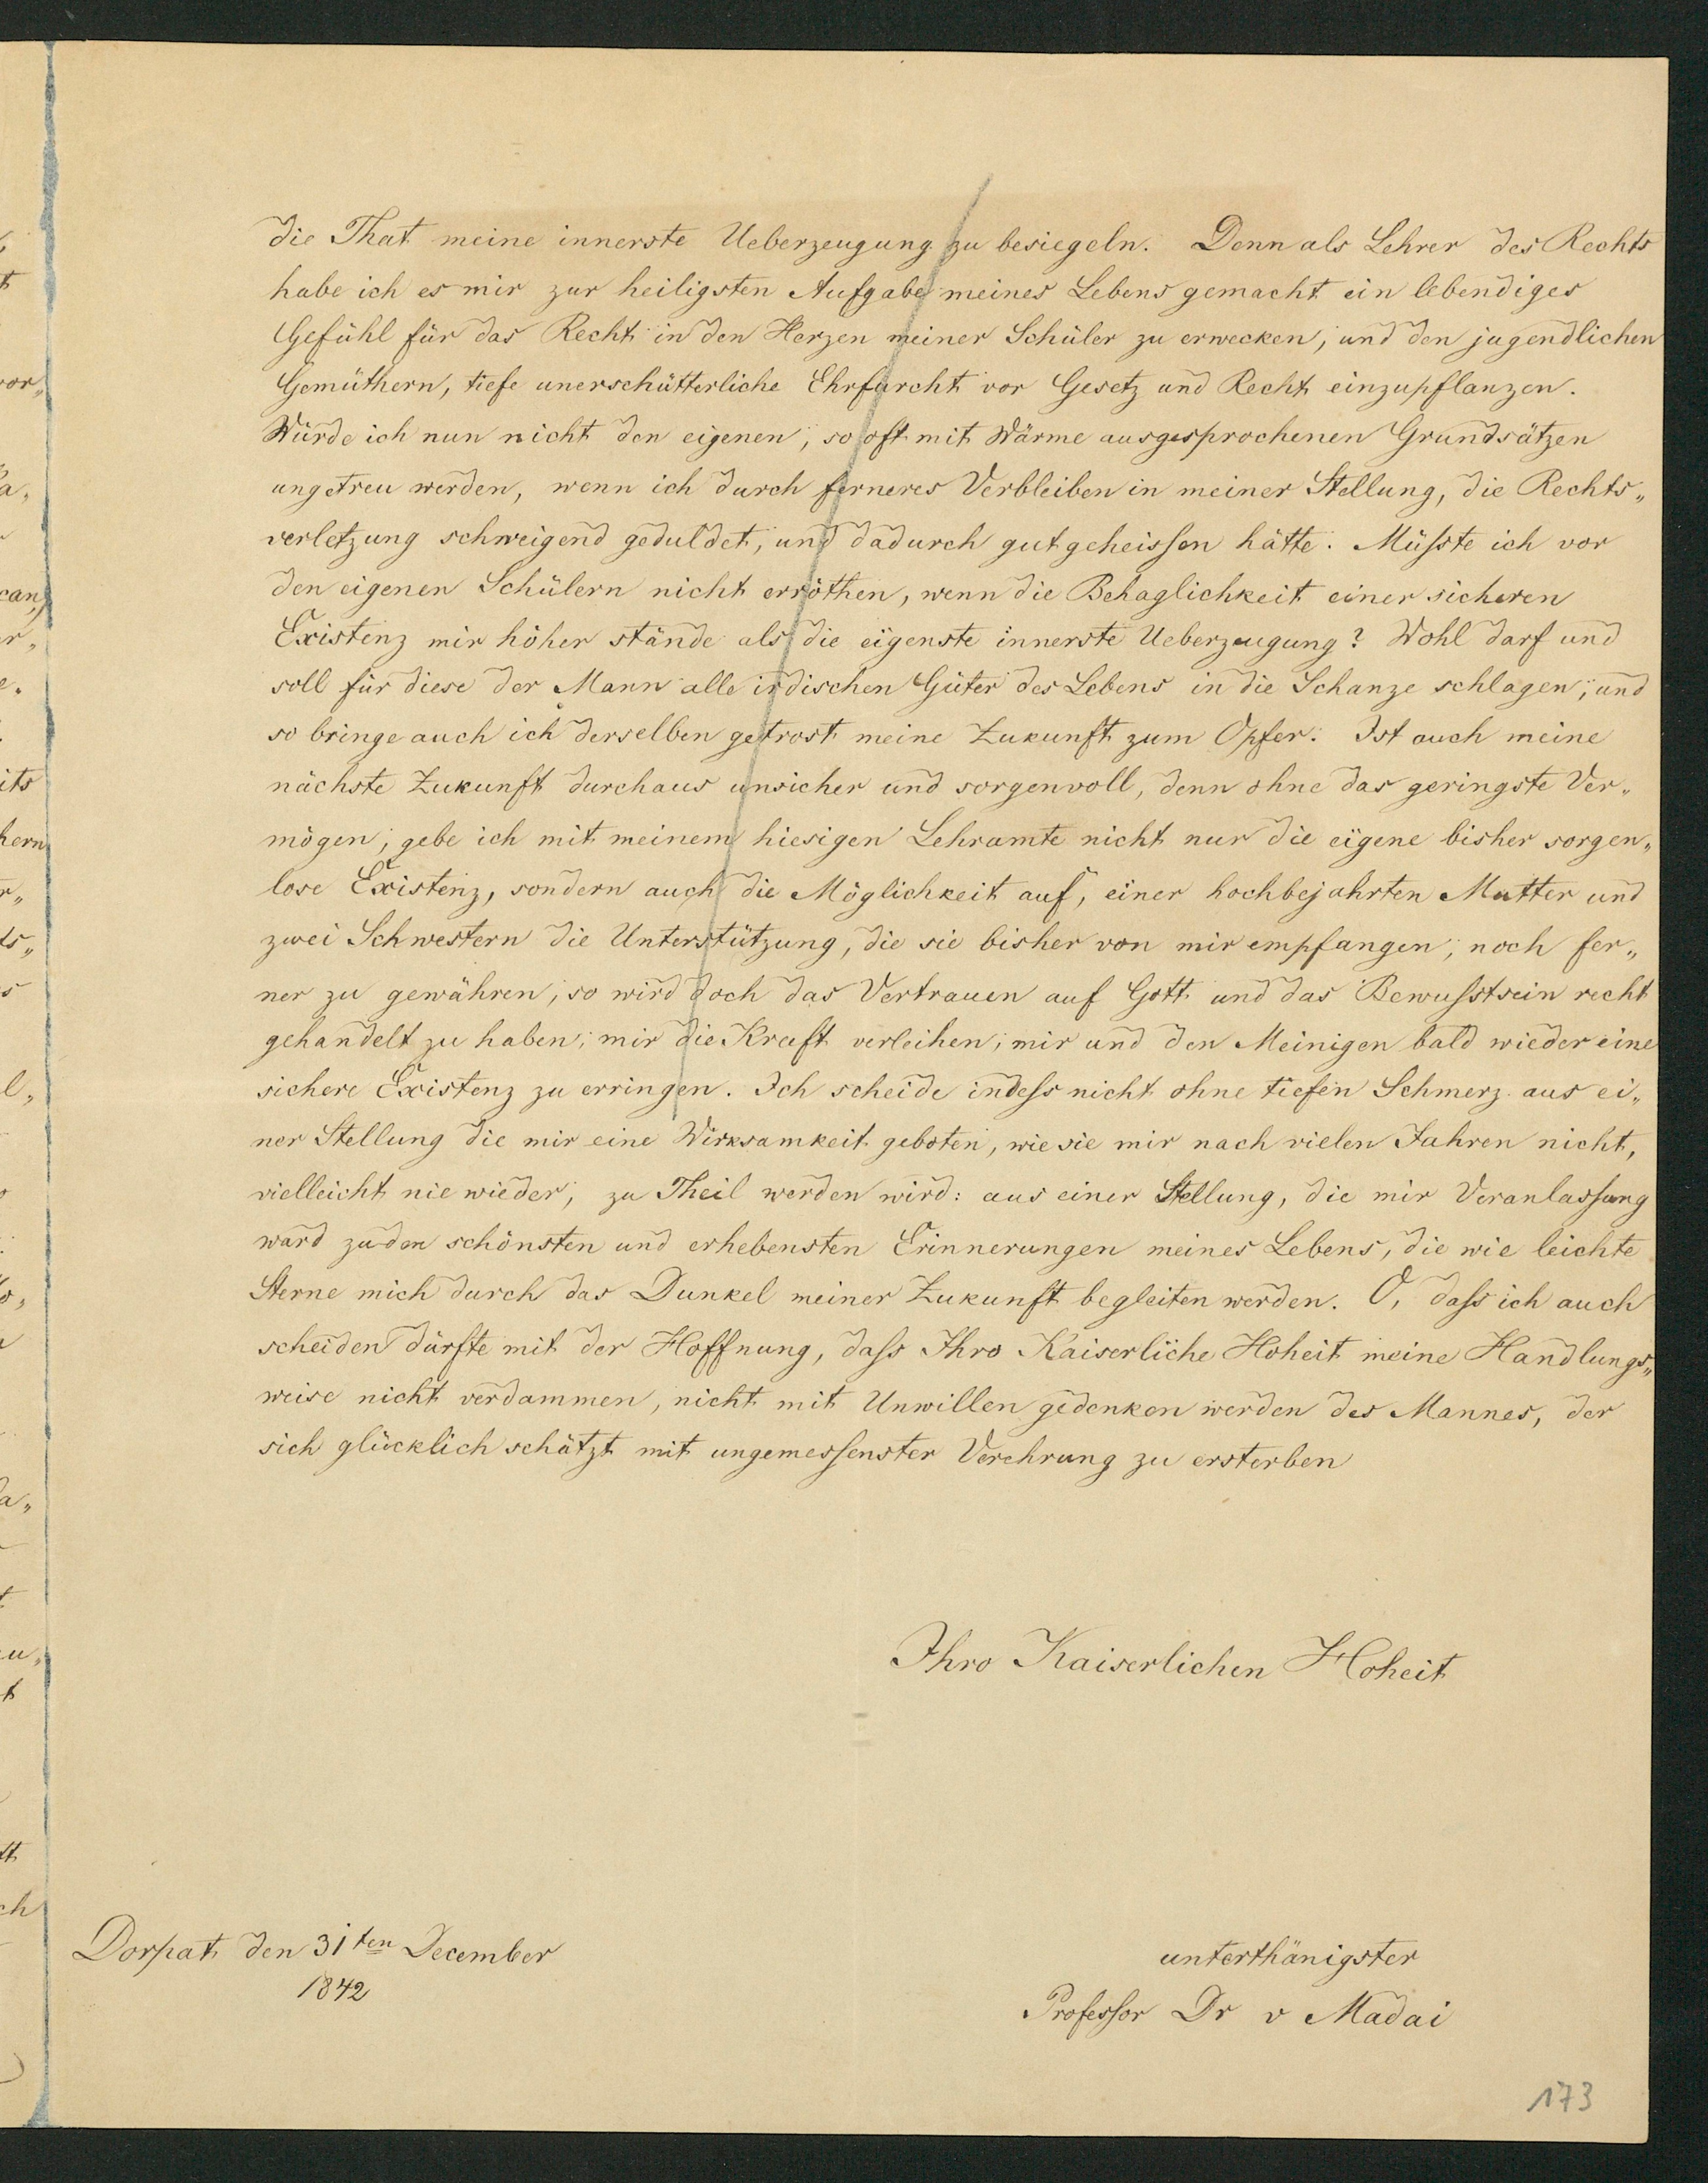 die That meine innerste Ueberzeugung zu besiegeln. Denn als Lehrer des Rechts
habe ich es mir zur heiligsten Aufgabe meines Lebens gemacht ein lebendiges
Gefühl für das Recht in den Herzen meiner Schüler zu erwecken, und den jugendlichen
Gemüthern, tiefe unerschütterliche Ehrfurcht vor Gesetz und Recht einzupflanzen.
Würde ich nun nicht den eigenen, so oft mit Wärme ausgesprochenen Grundsätzen
ungetreu werden, wenn ich durch ferneres Verbleiben in meiner Stellung, die Rechts„
verletzung schweigend geduldet, und dadurch gutgeheissen hätte. Müsste ich vor
den eigenen Schülern nicht erröthen, wenn die Behaglichkeit einer sicheren
Existenz mir höher stände als die eigenste innerste Ueberzeugung? Wohl darf und
soll für diese der Mann alle irdischen Güter des Lebens in die Schanze schlagen, und
so bringe auch ich derselben getrost meine Zukunft zum Opfer. Ist auch meine
nächste Zukunft durchaus unsicher und sorgenvoll, denn ohne das geringste Ver„
mögen, gebe ich mit meinem hiesigen Lehramte nicht nur die eigene bisher sorgen„
lose Existenz, sondern auch die Möglichkeit auf, einer hochbejahrten Mutter und
zwei Schwestern die Unterstützung, die sie bisher von mir empfangen, noch fer„
ner zu gewähren, so wird doch das Vertrauen auf Gott und das Bewusstsein recht
gehandelt zu haben, mir die Kraft verleihen, mir und den Meinigen bald wieder eine
sichere Existenz zu erringen. Ich scheide indess nicht ohne tiefen Schmerz aus ei„
ner Stellung die mir eine Wirksamkeit geboten, wie sie mir nach vielen Jahren nicht,
vielleicht nie wieder, zu Theil werden wird: aus einer Stellung, die mir Veranlassung
ward zu den schönsten und erhebensten Erinnerungen meines Lebens, die wie leichte
Sterne mich durch das Dunkel meiner Zukunft begleiten werden. O, dass ich auch
scheiden dürfte mit der Hoffnung, dass Ihro Kaiserliche Hoheit meine Handlungs„
weise nicht verdammen, nicht mit Unwillen gedenken werden des Mannes, der
sich glücklich schätzt mit ungemessenster Verehrung zu ersterben
Ihro Kaiserlichen Hoheit
unterthänigster
Professor Dr v Madai
Dorpat den 31ten December
1842
173